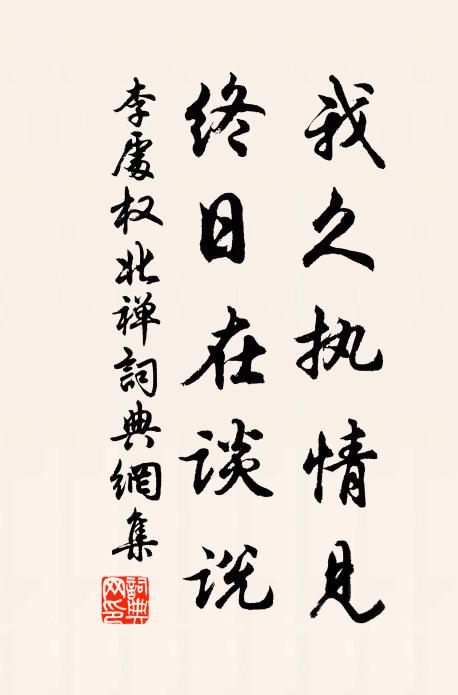 我久执情见
终日在谈说
李處权北禅詞典網集
詞典网印